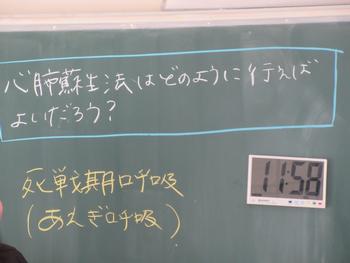 心肺蘇生法はどのように行えば
よいだろう?
死戦期呼吸
(あえぎ呼吸)
11:58